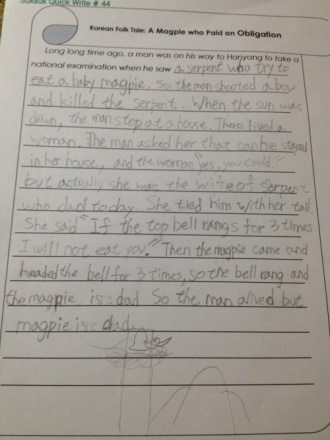 Suksuk Quick Write # 44
Korean Folk Tale: A Magpie who Paid an Obligation
Long long time ago, a man was on his way to Hanyang to take a
national examination when he saw a serpent who try to
eat a baby magpie. So the man shooted a bow
and killed the serpent. When the sun was
down, the man stop at a house. There lived a
woman. The man asked her that can he stayed
in her house, and the woman "yes, you could."
but actually she was the wife of serpent
who dad today. She tied him with her tail.
She said "If the top bell rangs for 3 times
I will not eat you." Then the magpie came and
headed the bell for 3 times, so the bell rang and
the magpie is dad So the man alived but
magpie is dad.